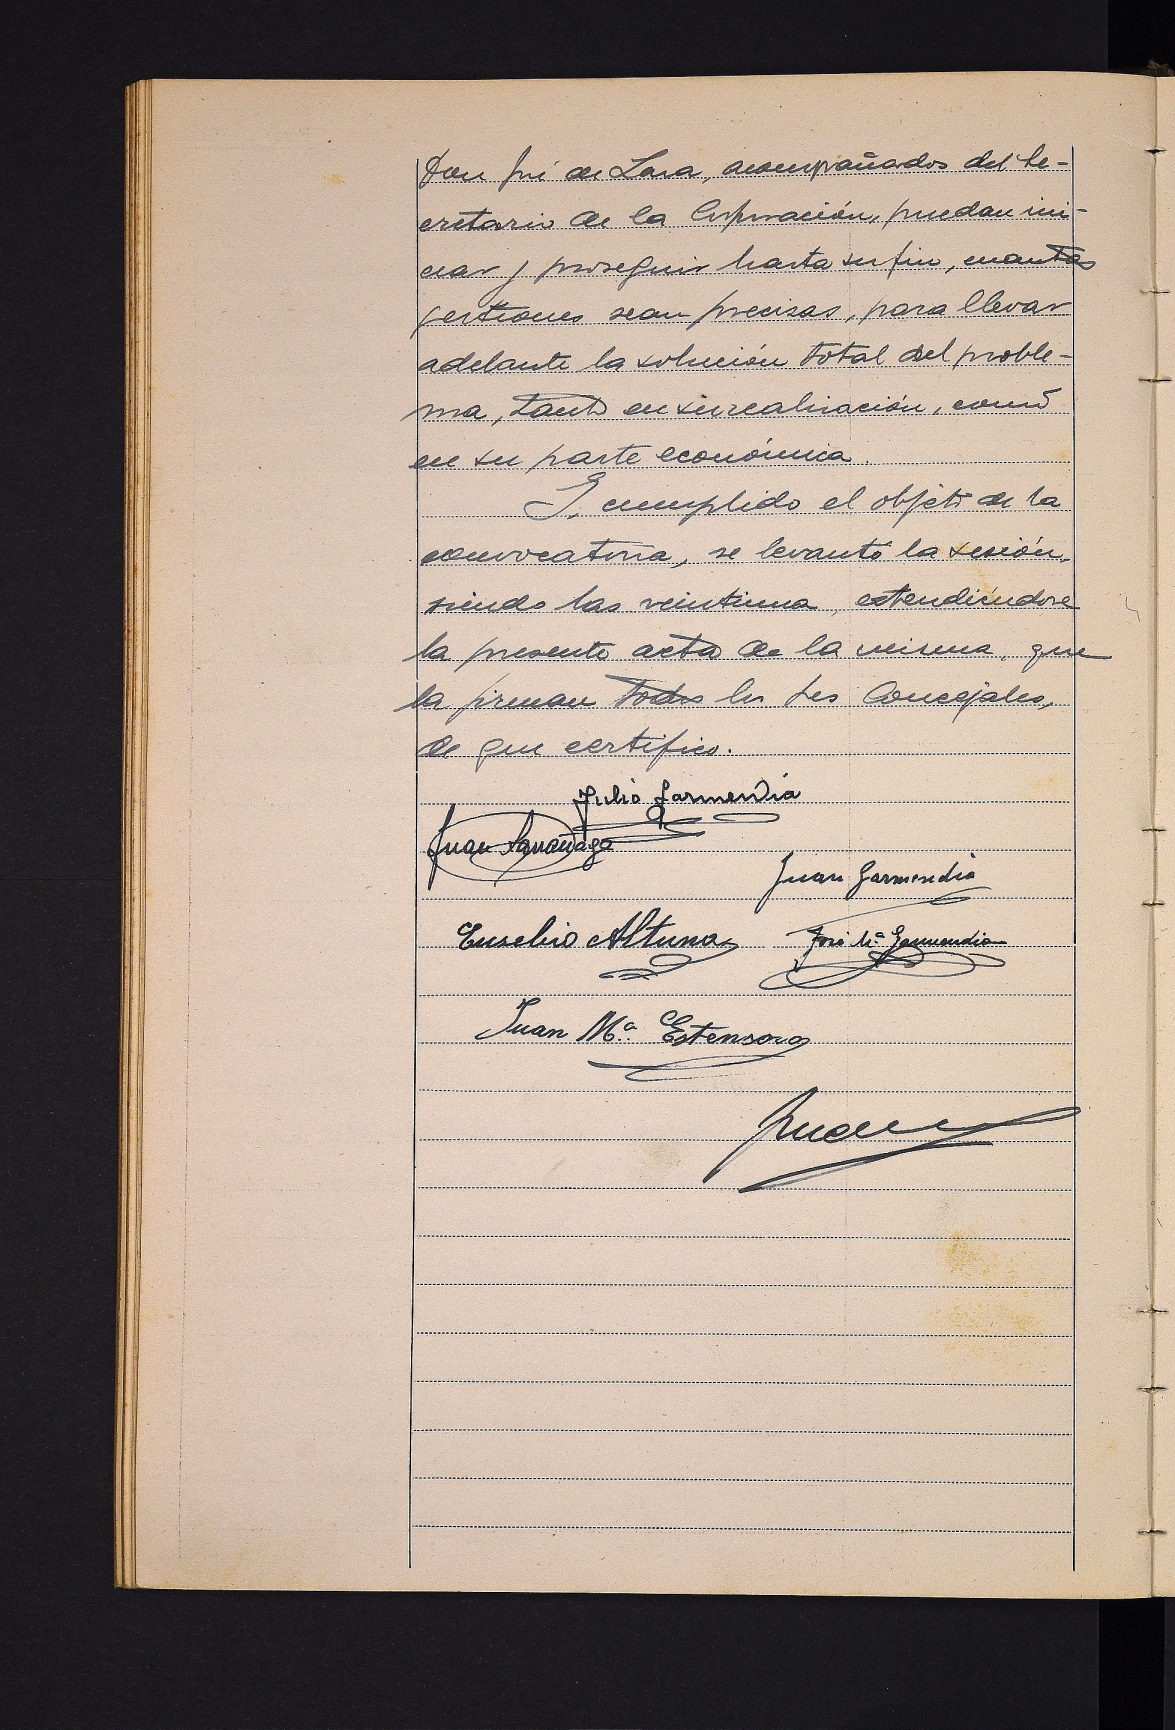 Don José de Lara, acompañados del Se-
cretario de la Corporación, puedan ini-
ciar y proseguir hasta su fin, cuantas
gestiones sean precisas, para llevar
adelante la solución total del proble-
ma, tanto en su realización, como
en su parte económica.
Y, cumplido el objeto de la
convocatoria, se levantó la sesión,
siendo las veintiuna, extendiéndose
la presente acta de la misma, que
la firman todos los Sres Concejales,
de que certifico.
Julio Garmendia
Juan
Juan Garmendia
Eusebio Altuna
José Mª Garmendia
Juan Mª Estensoro